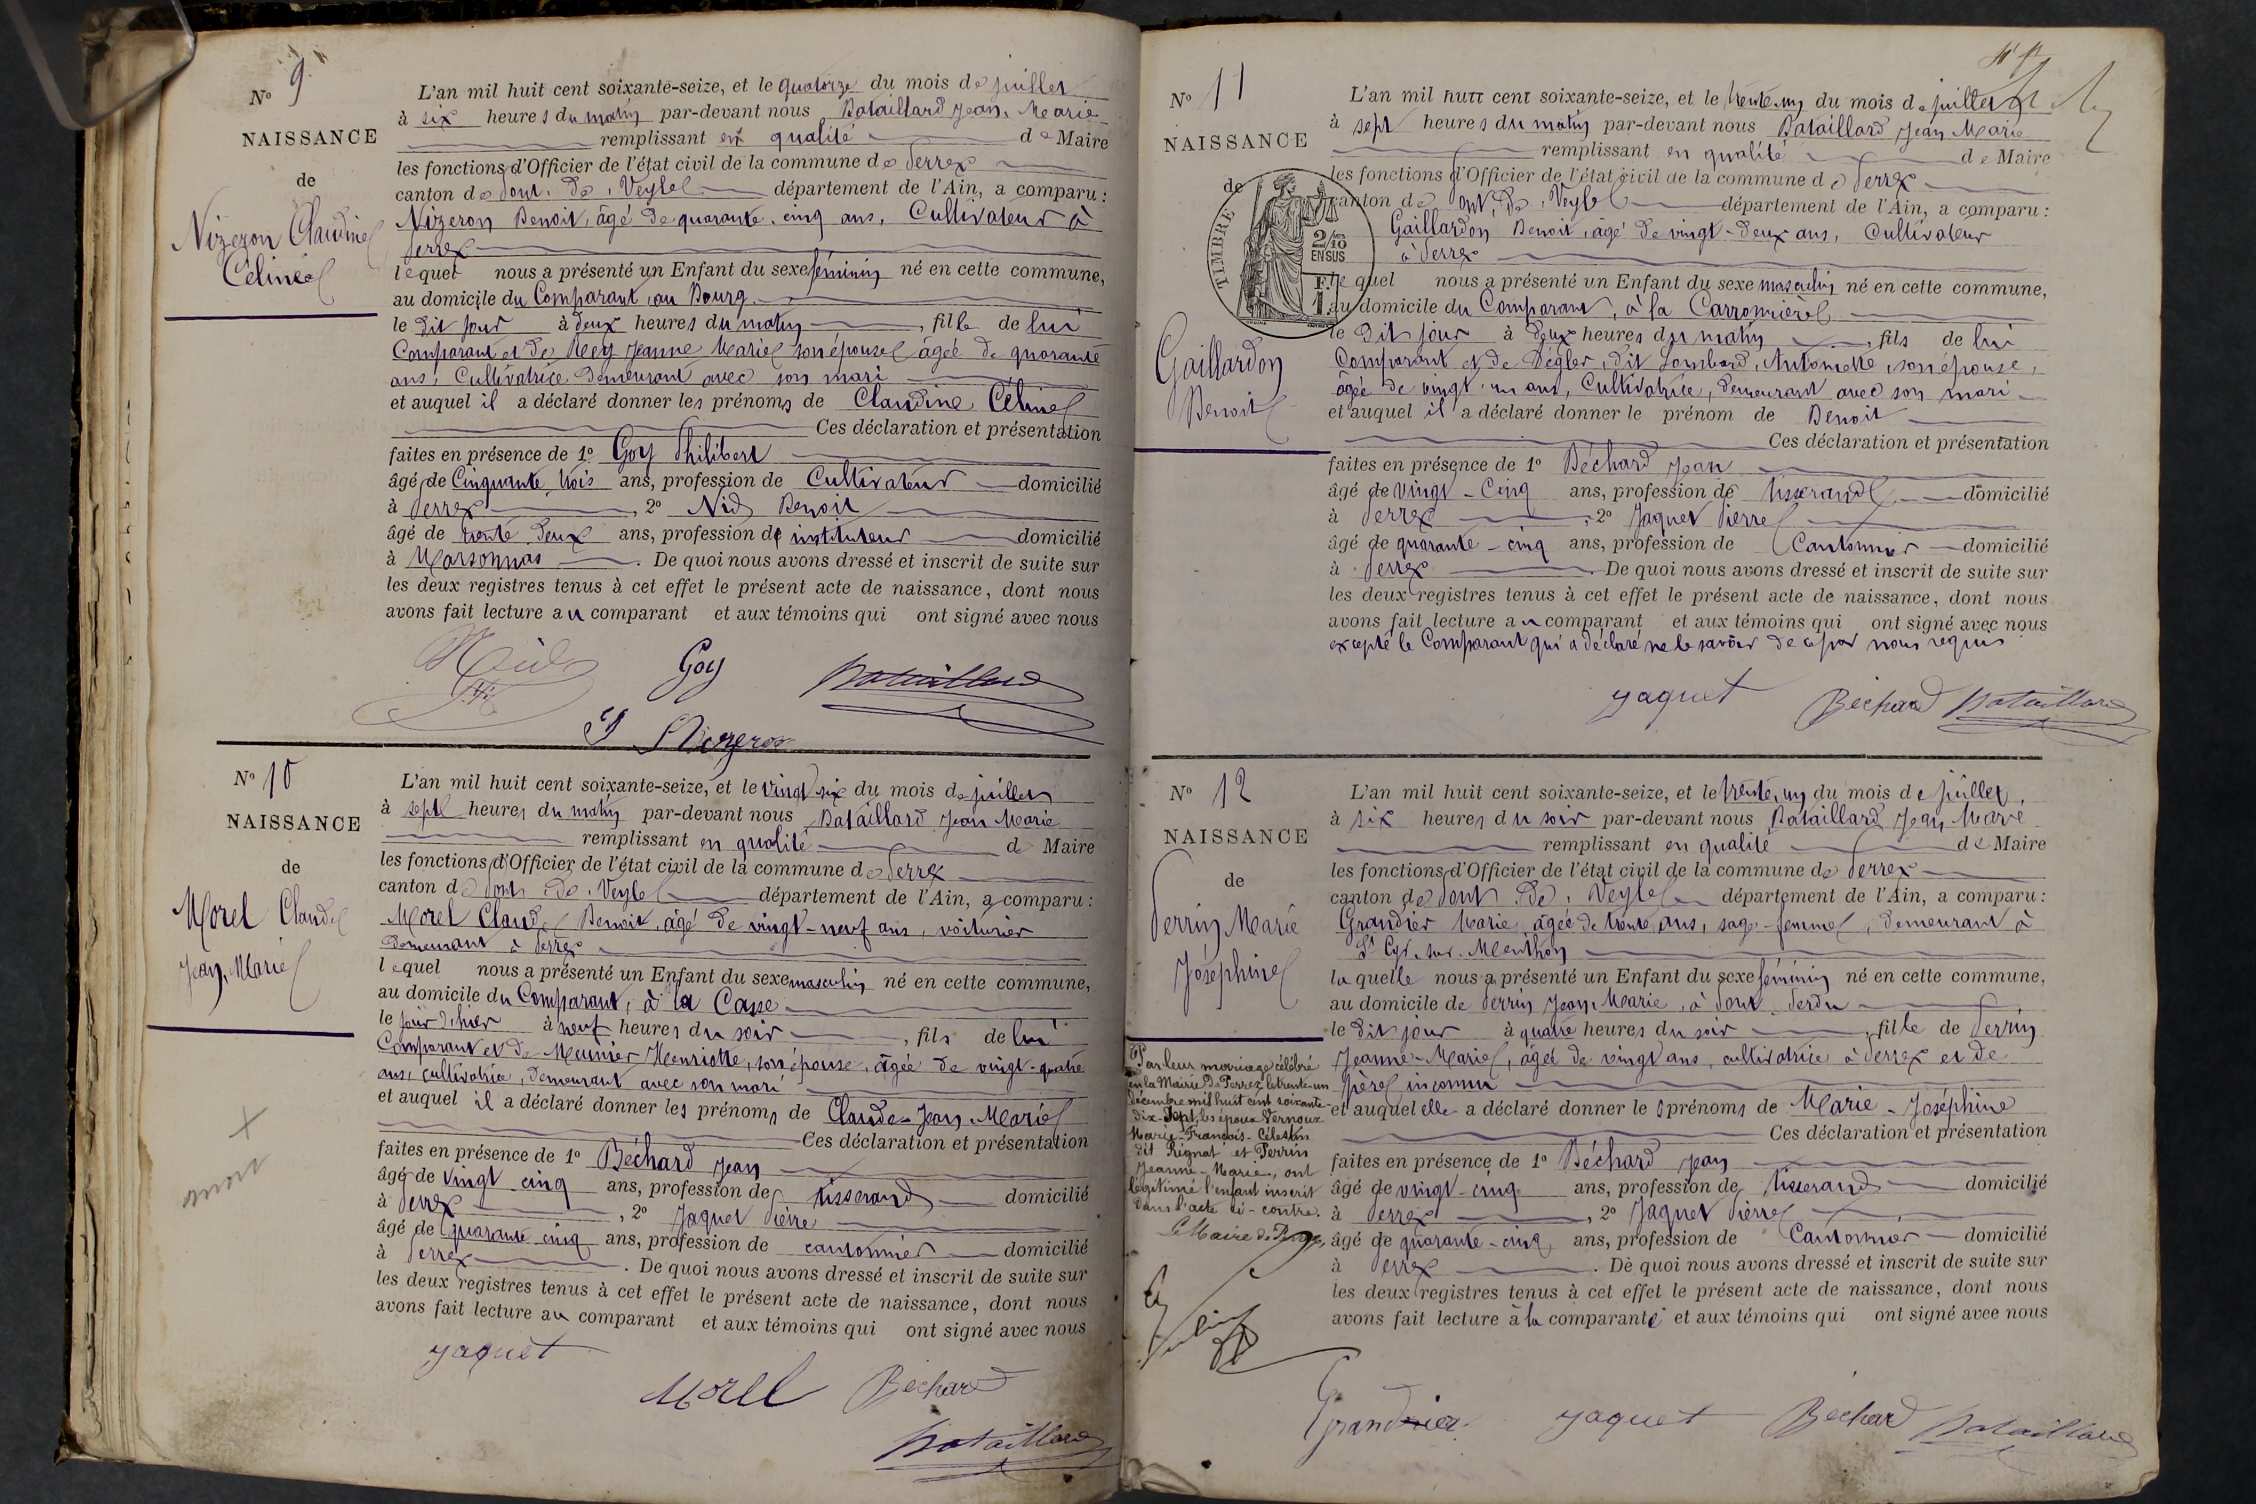 N° 9
NAISSANCE
de
Nizeron Claudine
Céline
L'an mil huit cent soixante-seize, et le quatorze du mois de juillet
à six heures du matin par-devant nous Bataillard Jean-Marie
remplissant en qualité de Maire
les fonctions d'Officier de l'état civil de la commune de Perrex
canton de Pont-de-Veyle département de l'Ain, a comparu:
Nizeron Benoit, âgé de quarante-cinq ans, Cultivateur à
Perrex
lequel nous a présenté un Enfant du sexe féminin né en cette commune,
au domicile du Comparant, au Bourg
le dit jour à deux heures du matin, fille de lui
Comparant et de Rey Jeanne Marie son épouse âgée de quarante
ans, Cultivatrice demeurant avec son mari
et auquel il a déclaré donner les prénoms de Claudine Céline
Ces déclaration et présentation
faites en présence de 1° Goy Philibert
âgé de Cinquante trois ans, profession de Cultivateur domicilié
à Perrex, 2° Nid Benoit
âgé de trente deux ans, profession de instituteur domicilié
à Marsonnas. De quoi nous avons dressé et inscrit de suite sur
les deux registres tenus à cet effet le présent acte de naissance, dont nous
avons fait lecture au comparant et aux témoins qui ont signé avec nous
Goy Bataillard
Nizeron
N° 10
NAISSANCE
de
Morel Claude
Jean-Marie
+
mort
L'an mil huit cent soixante-seize, et le vingt-six du mois de juillet
à sept heures du matin par-devant nous Bataillard Jean Marie
remplissant en qualité de Maire
les fonctions d'Officier de l'état civil de la commune de Perrex
canton de Pont-de-Veyle département de l'Ain, a comparu:
Morel Claude Benoit, âgé de vingt-neuf ans, voiturier
demeurant à Perrex
lequel nous a présenté un Enfant du sexe masculin né en cette commune,
au domicile du Comparant, à la Casse
le jour d'hier à neuf heures du soir, fils de lui
Comparant et de Meunier Henriette, son épouse, âgée de vingt-quatre
ans, cultivatrice, demeurant avec son mari
et auquel il a déclaré donner les prénoms de Claude-Jean-Marie
Ces déclaration et présentation
faites en présence de 1° Béchard Jean
âgé de vingt cinq ans, profession de tisserand domicilié
à Perrex, 2° Jaquet Pierre
âgé de quarante cinq ans, profession de cantonnier domicilié
à Perrex. De quoi nous avons dressé et inscrit de suite sur
les deux registres tenus à cet effet le présent acte de naissance, dont nous
avons fait lecture au comparant et aux témoins qui ont signé avec nous
Jaquet
Morel Béchard
Bataillard
N° 11
NAISSANCE
de
TIMBRE
2/10
EN SUS
Gaillardon
Benoit
L'an mil huit cent soixante-seize, et le trente-un du mois de juillet
à sept heures du matin par-devant nous Bataillard Jean Marie
remplissant en qualité de Maire
les fonctions d'Officier de l'état civil de la commune de Perrex
canton de Pont-de-Veyle département de l'Ain, a comparu:
Gaillardon Benoit, âgé de vingt-deux ans, Cultivateur
à Perrex
lequel nous a présenté un Enfant du sexe masculin né en cette commune,
au domicile du Comparant, à la Carronnière
le dit jour à deux heures du matin, fils de lui
Comparant et de Degler, dit Lombard, Antoinette, son épouse,
âgée de vingt-un ans, Cultivatrice, demeurant avec son mari
et auquel il a déclaré donner le prénom de Benoit
Ces déclaration et présentation
faites en présence de 1° Béchard Jean
âgé de vingt-cinq ans, profession de tisserand domicilié
à Perrex, 2° Jaquet Pierre
âgé de quarante-cinq ans, profession de Cantonnier domicilié
à Perrex. De quoi nous avons dressé et inscrit de suite sur
les deux registres tenus à cet effet le présent acte de naissance, dont nous
avons fait lecture au comparant et aux témoins qui ont signé avec nous
excepté le Comparant qui a déclaré ne le savoir de ce par nous requis
Jaquet Béchard Bataillard
N° 12
NAISSANCE
de
Perrin Marie
Joséphine
Par leur mariage célébré
en la Mairie de Perrex le trente-un
décembre mil huit cent soixante-
dix-sept, les époux Vernoux
Marie-François-Célestin
dit Rignat et Perrin
Jeanne-Marie, ont
légitimé l'enfant inscrit
dans l'acte ci-contre.
Le Maire de Perrex,
L'an mil huit cent soixante-seize, et le trente-un du mois de juillet,
à six heures du soir par-devant nous Bataillard Jean Marie
remplissant en qualité de Maire
les fonctions d'Officier de l'état civil de la commune de Perrex
canton de Pont-de-Veyle département de l'Ain, a comparu:
Grandier Marie âgée de trente ans, sage-femme, demeurant à
St Cyr-sur-Menthon
laquelle nous a présenté un Enfant du sexe féminin né en cette commune,
au domicile de Perrin Jean-Marie, à Pont-Perdu
le dit jour à quatre heures du soir, fille de Perrin
Jeanne-Marie, âgée de vingt ans, cultivatrice à Perrex et de
père inconnu
et auquel elle a déclaré donner les prénoms de Marie-Joséphine
Ces déclaration et présentation
faites en présence de 1° Béchard Jean
âgé de vingt-cinq ans, profession de tisserand domicilié
à Perrex, 2° Jaquet Pierre
âgé de quarante-cinq ans, profession de Cantonnier domicilié
à Perrex. De quoi nous avons dressé et inscrit de suite sur
les deux registres tenus à cet effet le présent acte de naissance, dont nous
avons fait lecture à la comparante et aux témoins qui ont signé avec nous
Grandier Jaquet Béchard Bataillard